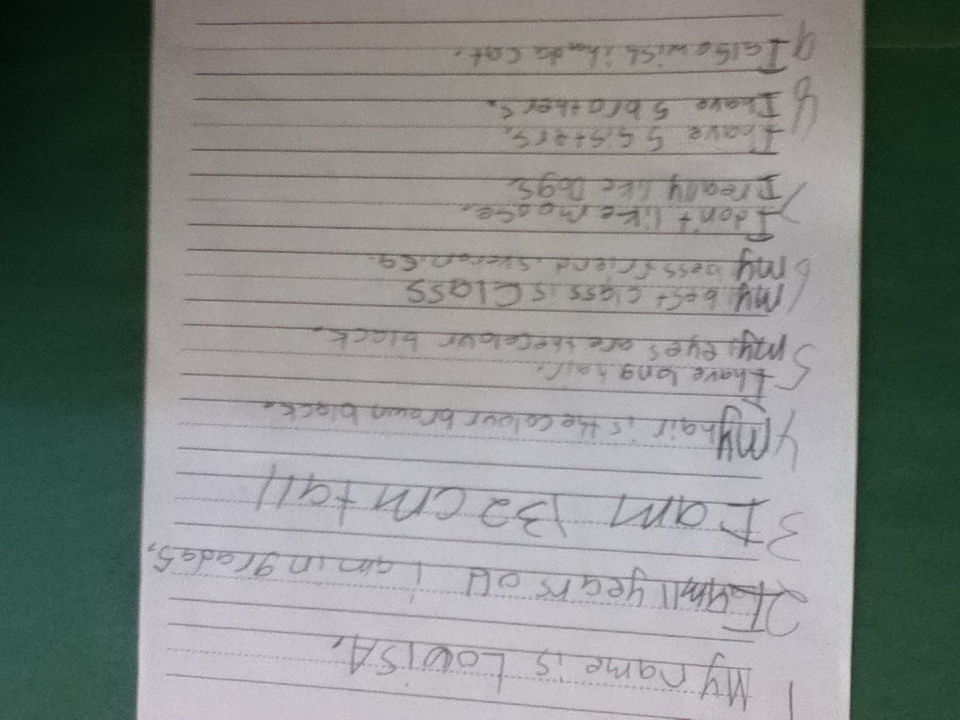 1 My name is LOUISA.
2 I am 11 years old I am in grade 5,
3 I am 132 cm tall
4 my hair is the colour brown black.
I have long hair.
5 my eyes are the colour black
my best class is CLASS
6 my bess friend is
I don't like mouse.
7 I really like Dogs.
I have 5 sistrs.
8 I have 5 brothers.
9 I also wish i had a cat.